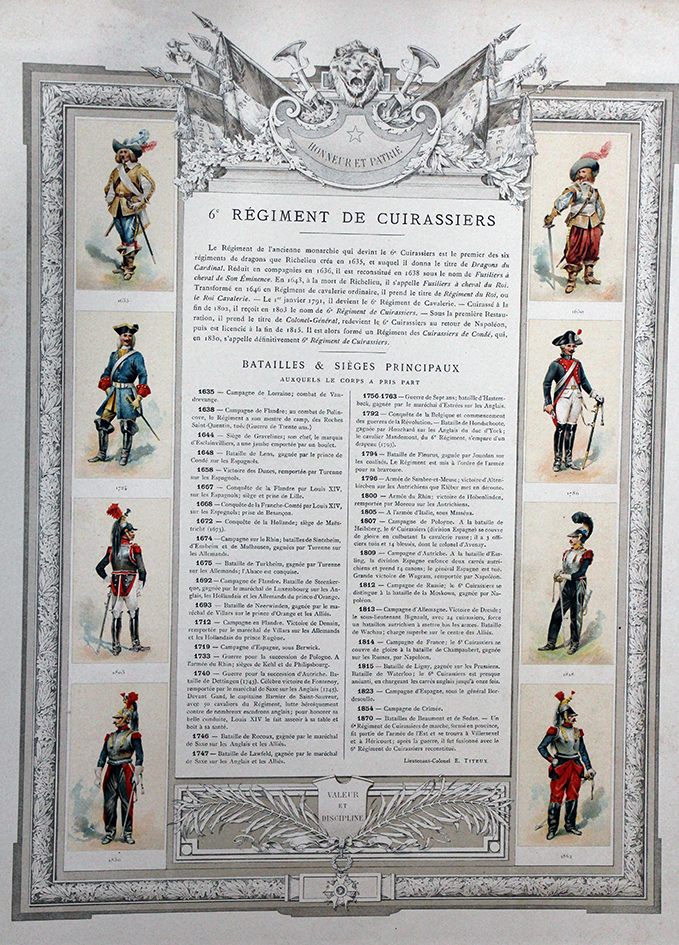 HONNEUR ET PATRIE
6e RÉGIMENT DE CUIRASSIERS
Le Régiment de l'ancienne monarchie qui devint le 6e Cuirassiers est le premier des six
régiments de dragons que Richelieu créa en 1635, et auquel il donna le titre de Dragons du
Cardinal. Réduit en compagnies en 1636, il est reconstitué en 1638 sous le nom de Fusiliers à
cheval de Son Éminence. En 1643, à la mort de Richelieu, il s'appelle Fusiliers à cheval du Roi.
Transformé en 1646 en Régiment de cavalerie ordinaire, il prend le titre de Régiment du Roi, ou
le Roi Cavalerie. — Le 1er janvier 1791, il devient le 6e Régiment de Cavalerie. — Cuirassé à la
fin de 1802, il reçoit en 1803 le nom de 6e Régiment de Cuirassiers. — Sous la première Restau-
ration, il prend le titre de Colonel-Général, redevient le 6e Cuirassiers au retour de Napoléon,
puis est licencié à la fin de 1815. Il est alors formé un Régiment des Cuirassiers de Condé, qui,
en 1830, s'appelle définitivement 6e Régiment de Cuirassiers.
BATAILLES & SIÈGES PRINCIPAUX
AUXQUELS LE CORPS A PRIS PART
1635 — Campagne de Lorraine; combat de Vau-
drevange.
1638 — Campagne de Flandre; au combat de Polin-
cove, le Régiment a son mestre de camp, des Roches
Saint-Quentin, tué; (Guerre de Trente ans.)
1644 — Siège de Gravelines; son chef, le marquis
d'Esclainvilliers, a une jambe emportée par un boulet.
1648 — Bataille de Lens, gagnée par le prince de
Condé sur les Espagnols.
1658 — Victoire des Dunes, remportée par Turenne
sur les Espagnols.
1667 — Conquête de la Flandre par Louis XIV,
sur les Espagnols; siège et prise de Lille.
1668 — Conquête de la Franche-Comté par Louis XIV,
sur les Espagnols; prise de Besançon.
1672 — Conquête de la Hollande; siège de Maës-
tricht (1673).
1674 — Campagne sur le Rhin; batailles de Sintzheim,
d'Ensheim et de Mulhausen, gagnées par Turenne sur
les Allemands.
1675 — Bataille de Turkheim, gagnée par Turenne
sur les Allemands; l'Alsace est conquise.
1692 — Campagne de Flandre. Bataille de Steenker-
que, gagnée par le maréchal de Luxembourg sur les An-
glais, les Hollandais et les Allemands du prince d'Orange.
1693 — Bataille de Neerwinden, gagnée par le ma-
réchal de Villars sur le prince d'Orange et les Alliés.
1712 — Campagne en Flandre. Victoire de Denain,
remportée par le maréchal de Villars sur les Allemands
et les Hollandais du prince Eugène.
1719 — Campagne d'Espagne, sous Berwick.
1733 — Guerre pour la succession de Pologne. A
l'armée du Rhin; sièges de Kehl et de Philipsbourg.
1740 — Guerre pour la succession d'Autriche. Ba-
taille de Dettingen (1743). Célèbre victoire de Fontenoy,
remportée par le maréchal de Saxe sur les Anglais (1745).
Devant Gand, le capitaine Barnier de Saint-Sauveur,
avec 50 cavaliers du Régiment, lutte héroïquement
contre de nombreux escadrons anglais; pour honorer sa
belle conduite, Louis XIV le fait asseoir à sa table et
boit à sa santé.
1746 — Bataille de Rocoux, gagnée par le maréchal
de Saxe sur les Anglais et les Alliés.
1747 — Bataille de Lawfeld, gagnée par le maréchal
de Saxe sur les Anglais et les Alliés.
1756-1763 — Guerre de Sept ans; bataille d'Hastem-
beck, gagnée par le maréchal d'Estrées sur les Anglais.
1792 — Conquête de la Belgique et commencement
des guerres de la Révolution. — Bataille de Hondschoote,
gagnée par Houchard sur les Anglais du duc d'York;
le cavalier Mandement, du 6e Régiment, s'empare d'un
drapeau (1793).
1794 — Bataille de Fleurus, gagnée par Jourdan sur
les coalisés. Le Régiment est mis à l'ordre de l'armée
pour sa bravoure.
1796 — Armée de Sambre-et-Meuse; victoire d'Alten-
kirchen sur les Autrichiens que Kléber met en déroute.
1800 — Armée du Rhin; victoire de Hohenlinden,
remportée par Moreau sur les Autrichiens.
1805 — A l'armée d'Italie, sous Masséna.
1807 — Campagne de Pologne. A la bataille de
Heilsberg, le 6e Cuirassiers (division Espagne) se couvre
de gloire en culbutant la cavalerie russe; il a 3 offi-
ciers tués et 14 blessés, dont le colonel d'Avenay.
1809 — Campagne d'Autriche. A la bataille d'Ess-
ling, la division Espagne enfonce deux carrés autri-
chiens et prend 14 canons; le général Espagne est tué.
Grande victoire de Wagram, remportée par Napoléon.
1812 — Campagne de Russie; le 6e Cuirassiers se
distingue à la bataille de la Moskowa, gagnée par Na-
poléon.
1813 — Campagne d'Allemagne. Victoire de Dresde;
le sous-lieutenant Bignault, avec 24 cuirassiers, force
un bataillon autrichien à mettre bas les armes. Bataille
de Wachau; charge superbe sur le centre des Alliés.
1814 — Campagne de France; le 6e Cuirassiers se
couvre de gloire à la bataille de Champaubert, gagnée
sur les Russes, par Napoléon.
1815 — Bataille de Ligny, gagnée sur les Prussiens.
Bataille de Waterloo; le 6e Cuirassiers est presque
anéanti, en chargeant les carrés anglais jusqu'à onze fois.
1823 — Campagne d'Espagne, sous le général Bor-
desoulle.
1854 — Campagne de Crimée.
1870 — Batailles de Beaumont et de Sedan. — Un
6e Régiment de Cuirassiers de marche, formé en province,
fit partie de l'armée de l'Est et se trouva à Villersexel
et à Héricourt; après la guerre, il fut fusionné avec le
6e Régiment de Cuirassiers reconstitué.
Lieutenant-Colonel E. TITEUX
VALEUR
ET
DISCIPLINE
1635
1724
1803
1830
1786